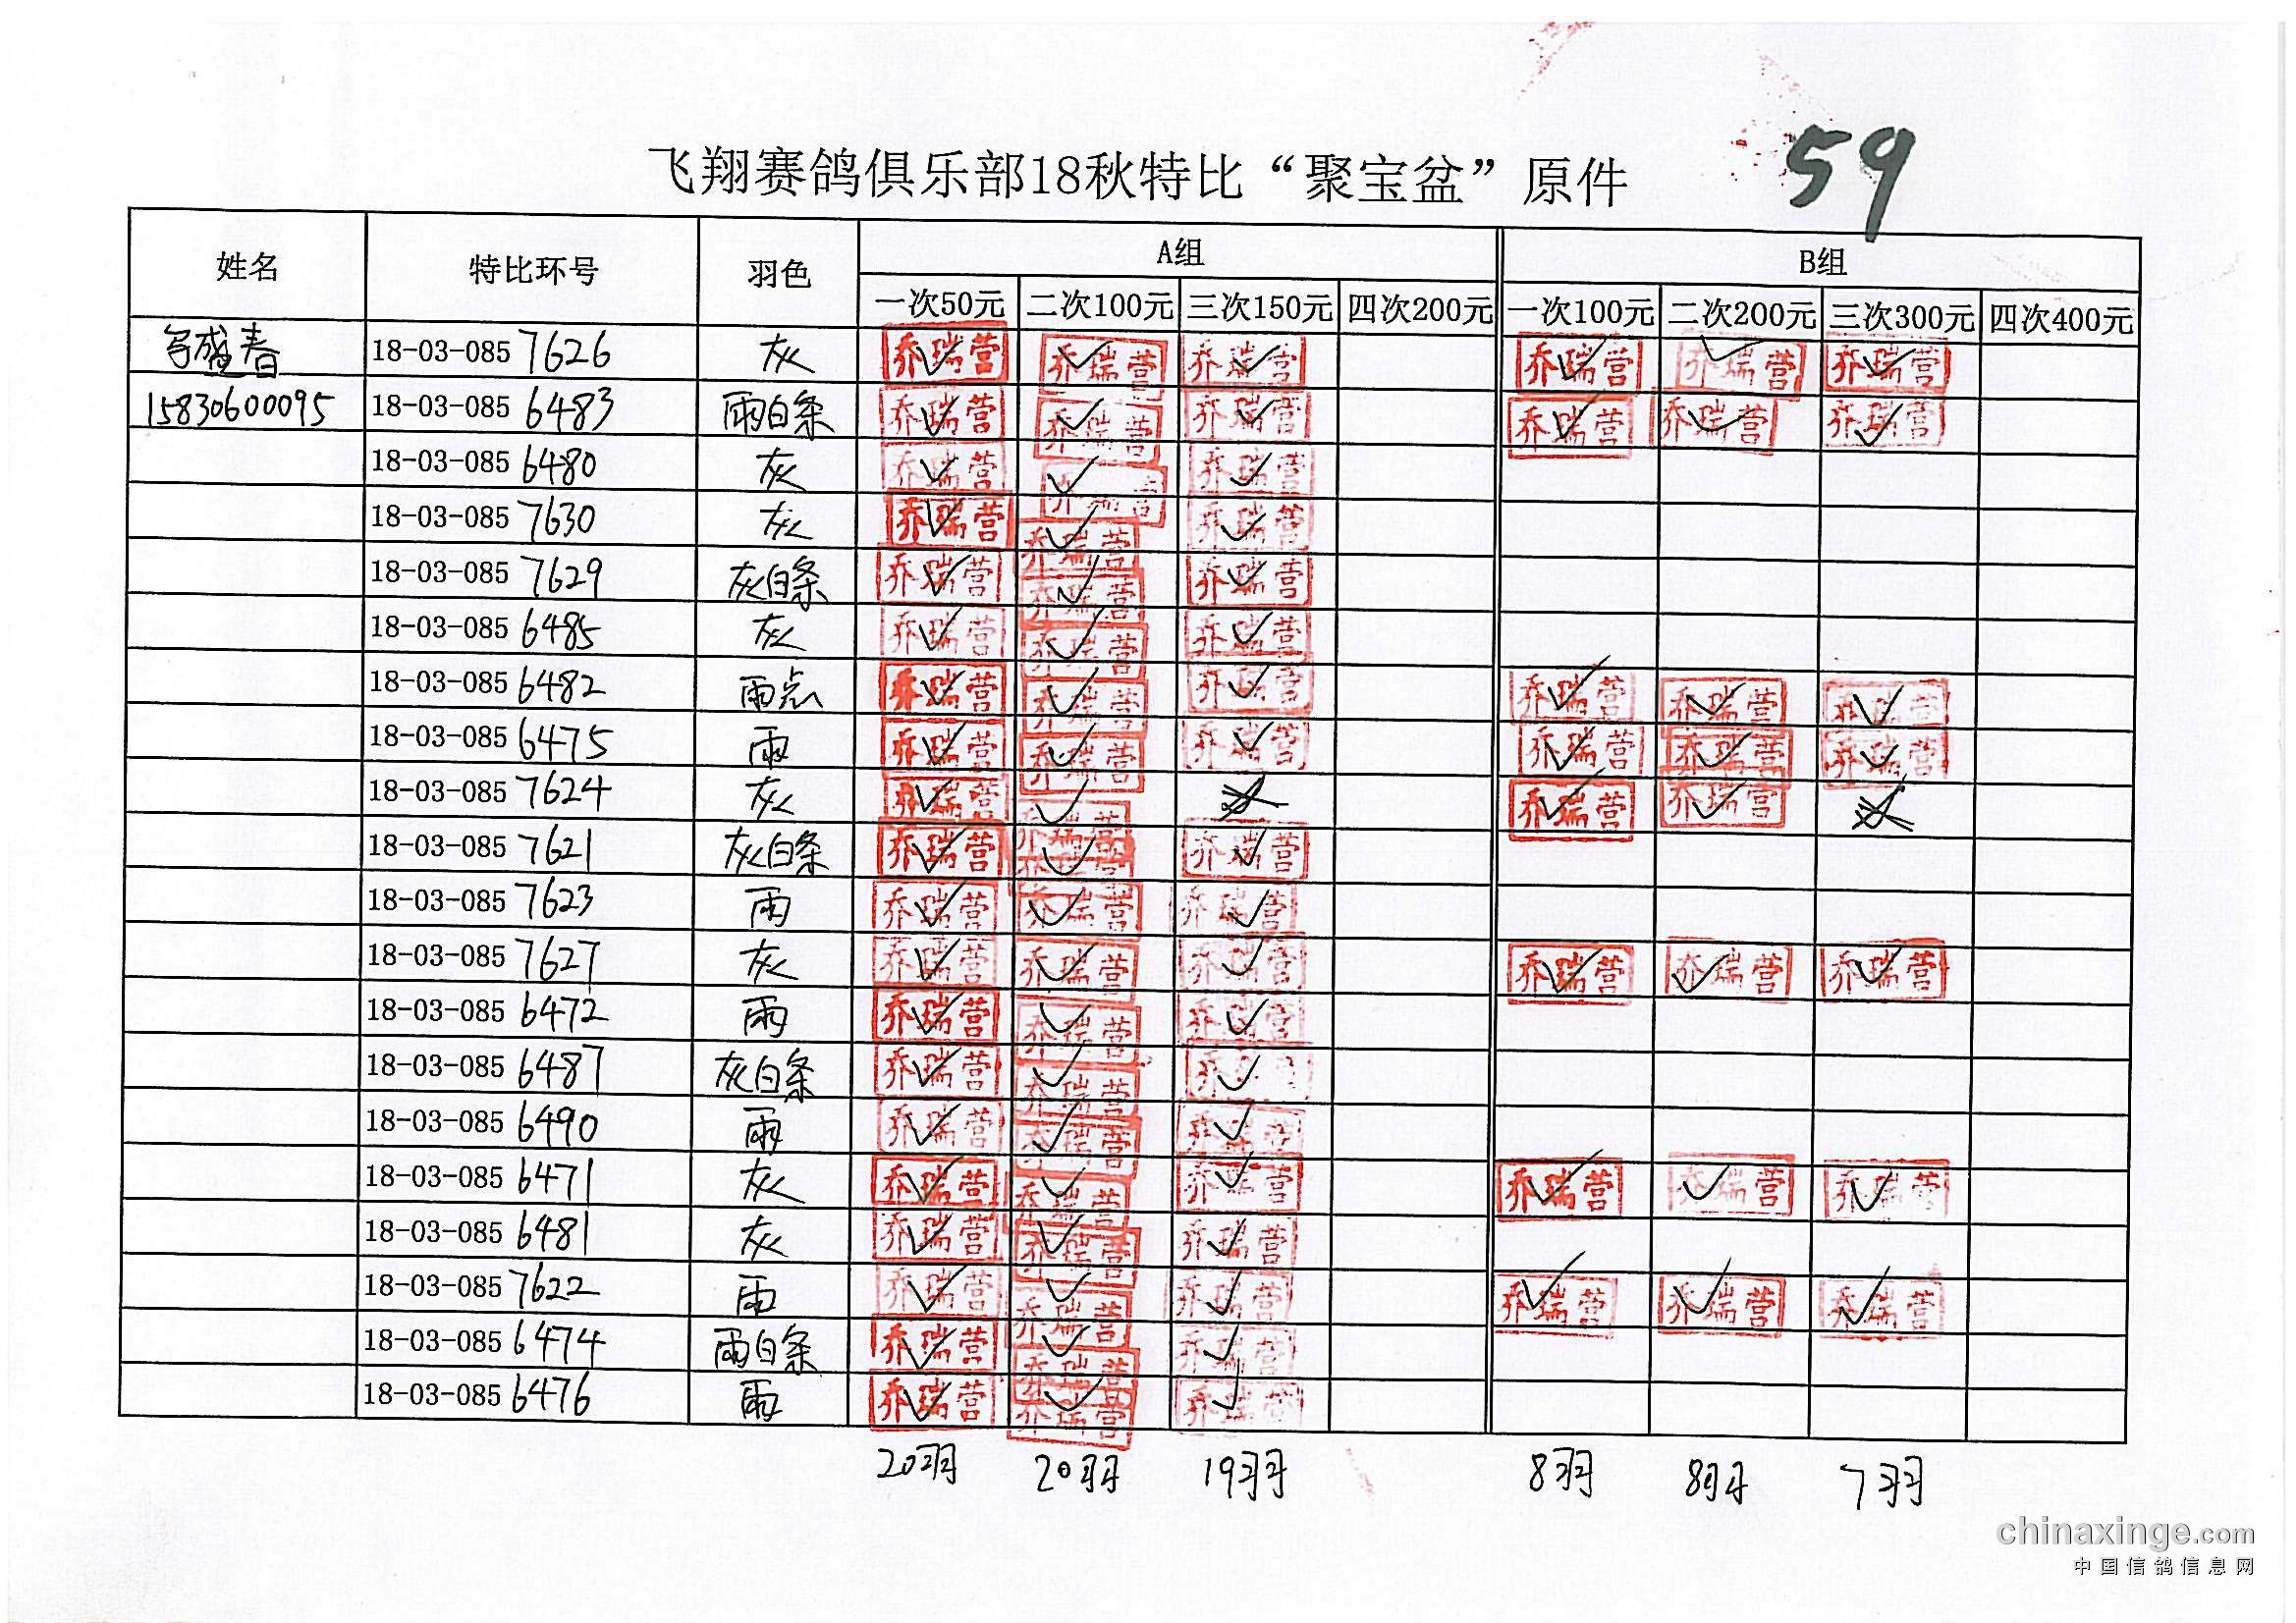 飞翔赛鸽俱乐部18秋特比“聚宝盆”原件 59
姓名 特比环号 羽色 A组 B组
一次50元 二次100元 三次150元 四次200元 一次100元 二次200元 三次300元 四次400元
盛春 18-03-085 7626 灰 乔瑞营 乔瑞营 乔瑞营 乔瑞营 乔瑞营 乔瑞营
15830600095 18-03-085 6483 雨白条 乔瑞营 乔瑞营 乔瑞营 乔瑞营 乔瑞营 乔瑞营
18-03-085 6480 灰 乔瑞营 乔瑞营 乔瑞营
18-03-085 7630 灰 乔瑞营 乔瑞营 乔瑞营
18-03-085 7629 灰白条 乔瑞营 乔瑞营 乔瑞营
18-03-085 6485 灰 乔瑞营 乔瑞营 乔瑞营
18-03-085 6482 雨点 乔瑞营 乔瑞营 乔瑞营 乔瑞营 乔瑞营 乔瑞营
18-03-085 6475 雨 乔瑞营 乔瑞营 乔瑞营 乔瑞营 乔瑞营 乔瑞营
18-03-085 7624 灰 乔瑞营 乔瑞营 乔瑞营 乔瑞营
18-03-085 7621 灰白条 乔瑞营 乔瑞营 乔瑞营
18-03-085 7623 雨 乔瑞营 乔瑞营 乔瑞营
18-03-085 7627 灰 乔瑞营 乔瑞营 乔瑞营 乔瑞营 乔瑞营 乔瑞营
18-03-085 6472 雨 乔瑞营 乔瑞营 乔瑞营
18-03-085 6487 灰白条 乔瑞营 乔瑞营 乔瑞营
18-03-085 6490 雨 乔瑞营 乔瑞营 乔瑞营
18-03-085 6471 灰 乔瑞营 乔瑞营 乔瑞营 乔瑞营 乔瑞营 乔瑞营
18-03-085 6481 灰 乔瑞营 乔瑞营 乔瑞营
18-03-085 7622 雨 乔瑞营 乔瑞营 乔瑞营 乔瑞营 乔瑞营 乔瑞营
18-03-085 6474 雨白条 乔瑞营 乔瑞营 乔瑞营
18-03-085 6476 雨 乔瑞营 乔瑞营 乔瑞营
20羽 20羽 19羽 8羽 8羽 7羽
chinaxinge.com
中国信鸽信息网